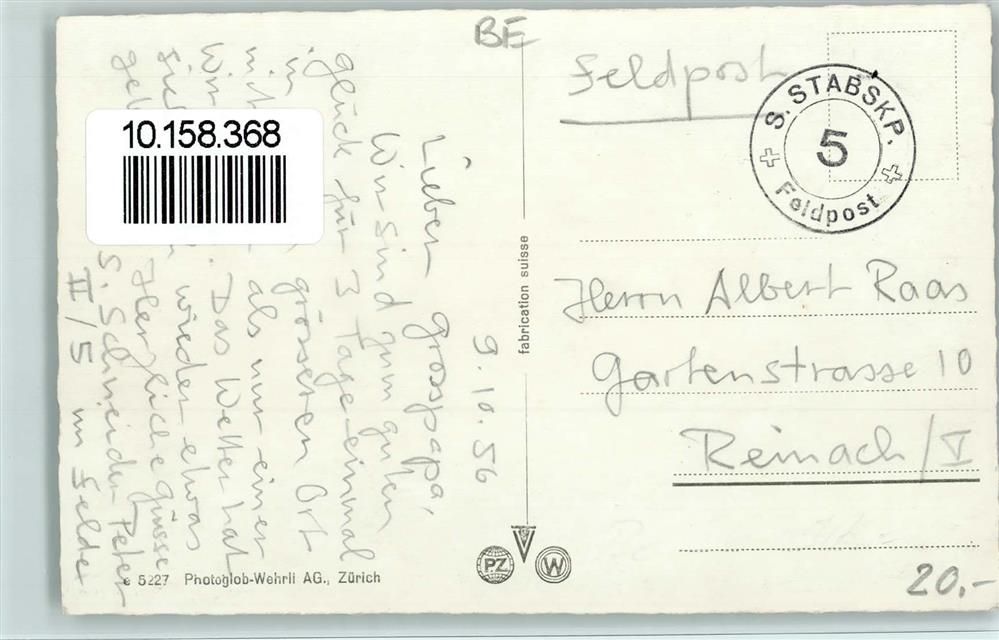 BE
Feldpost
S. STABSKP.
5
Feldpost
10.158.368
9.10.56
Lieber Grosspapa,
Wir sind zum guten
Glück für 3 Tage einmal
in grösseren Ort
als nur einer
Wir Das Wetter hat
wieder etwas
Herzliche Grüsse
S. Schneider Peter
II/5 im Felde
fabrication suisse
Herrn Albert Raas
Gartenstrasse 10
Reinach/
PZ
W
e 5227 Photoglob-Wehrli AG., Zürich
20.-